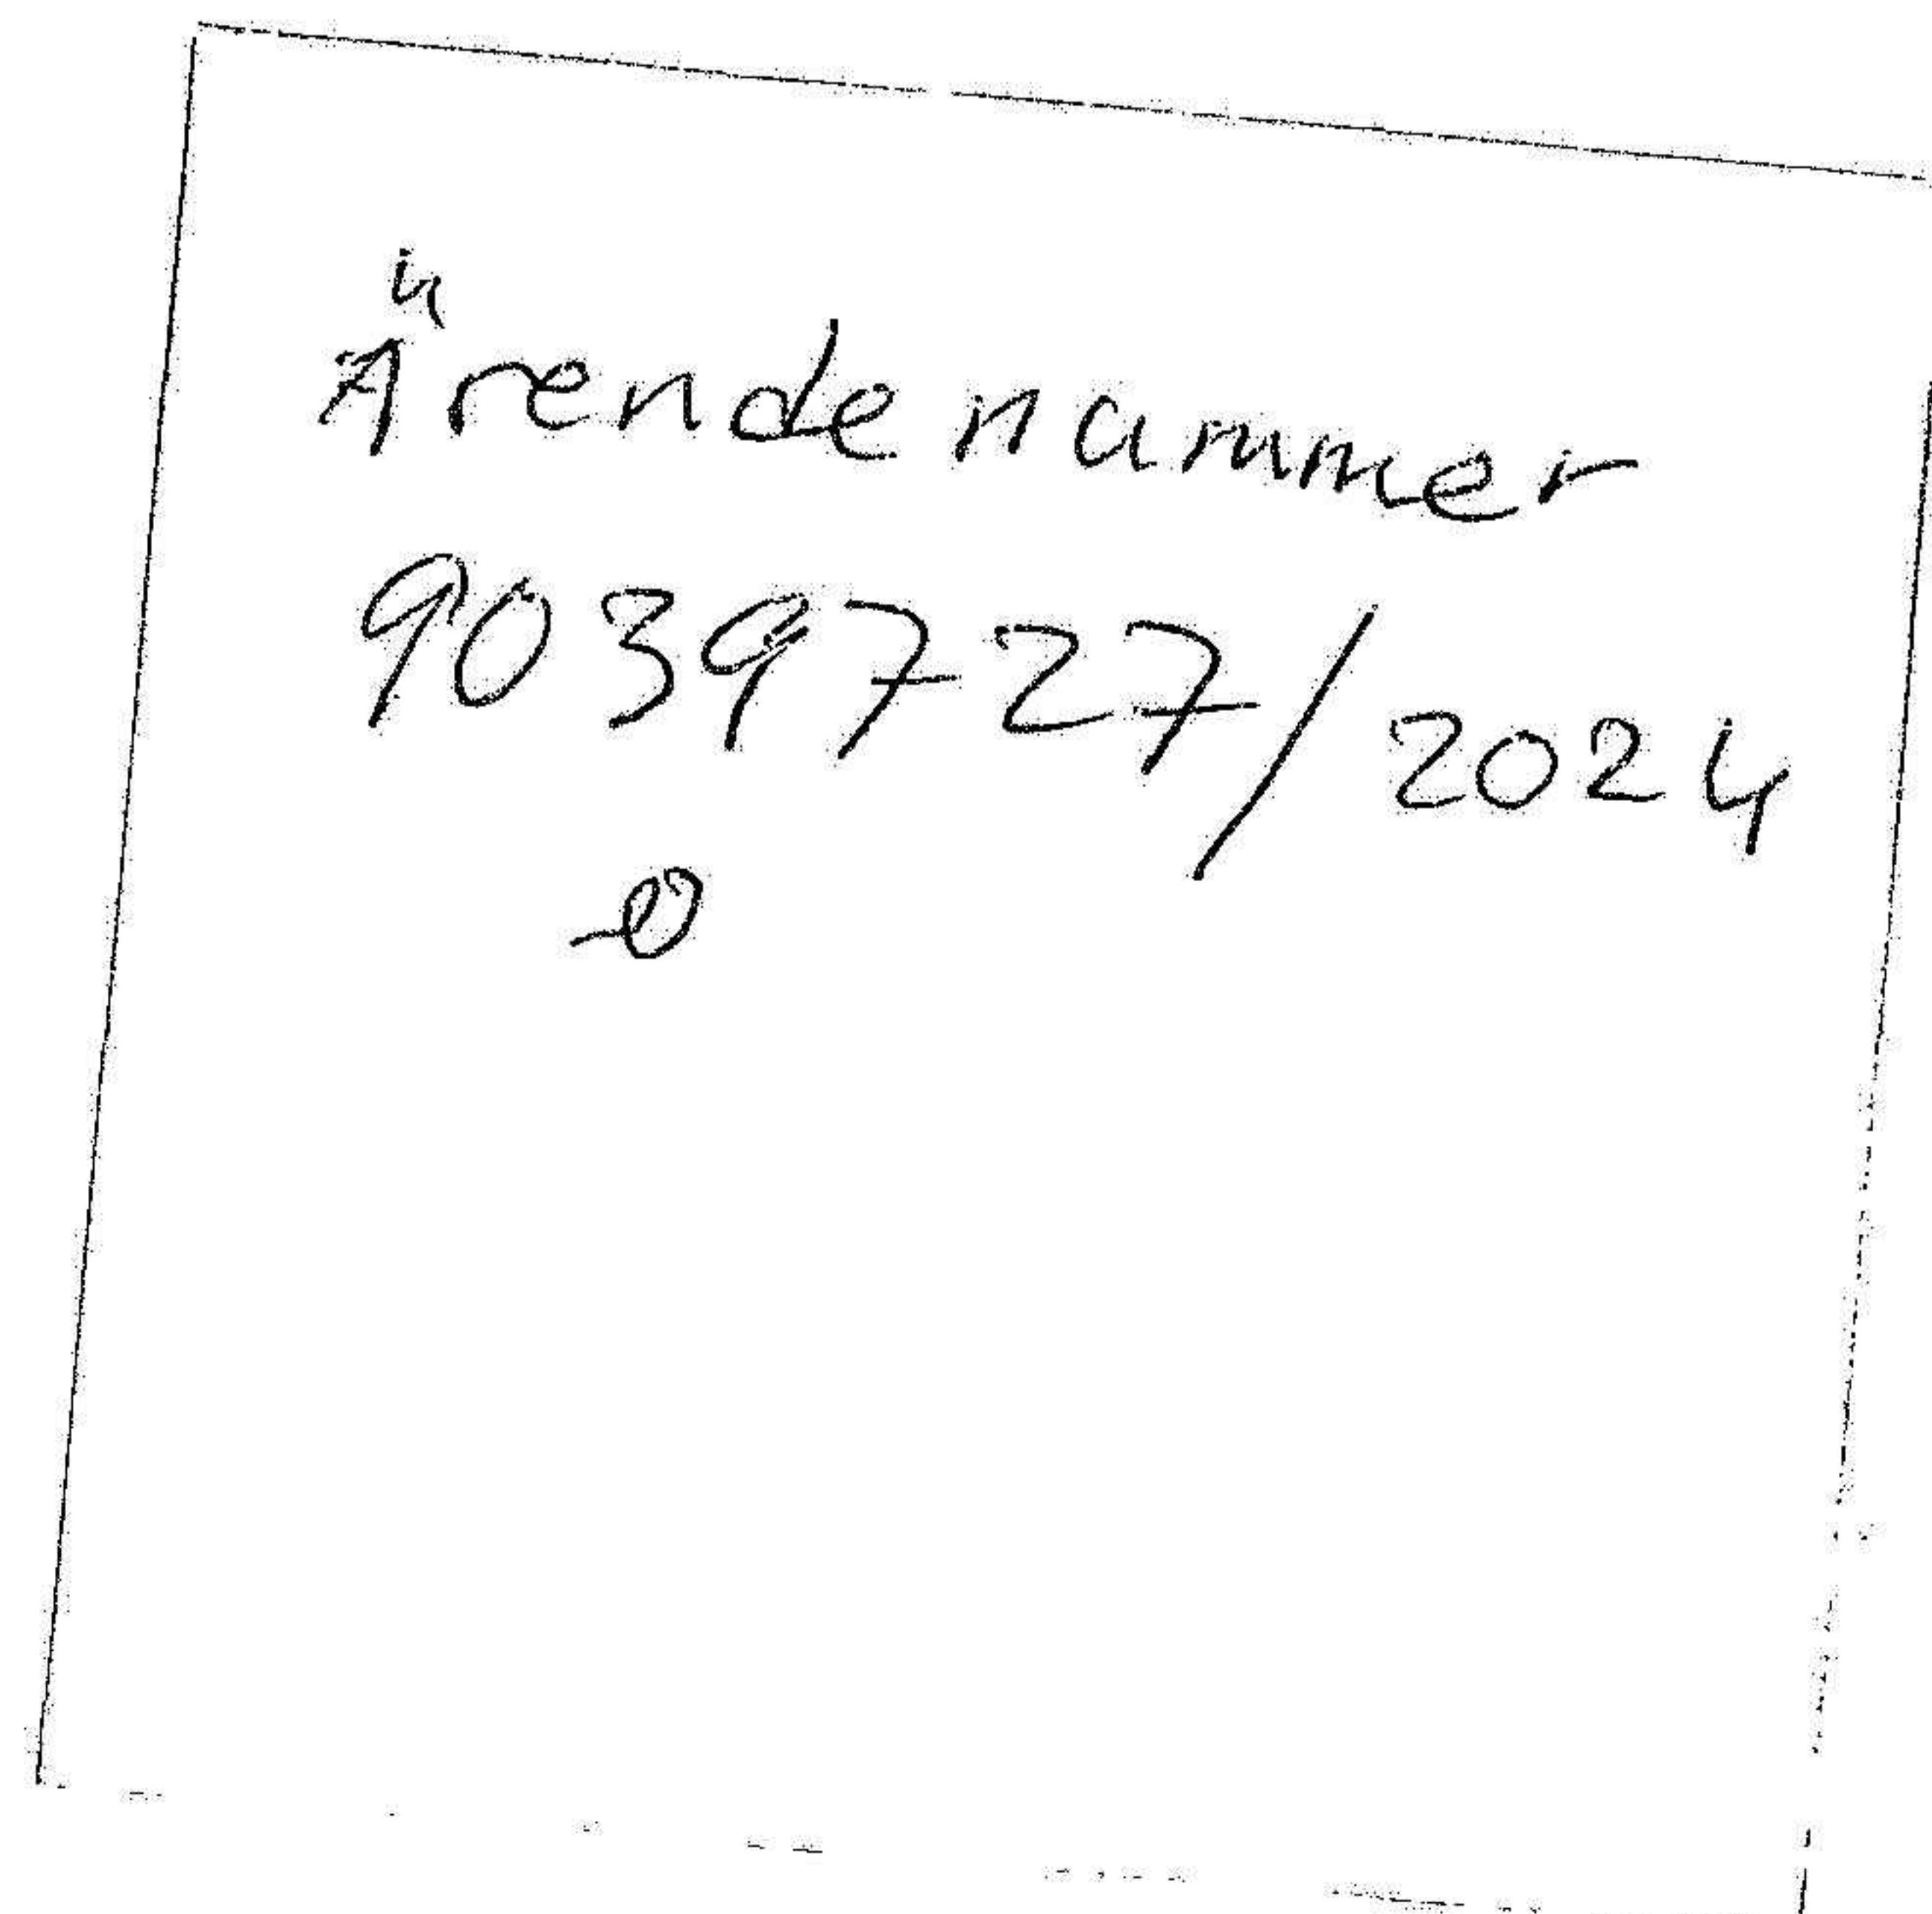 Ärendenummer
9039727/2024
-0